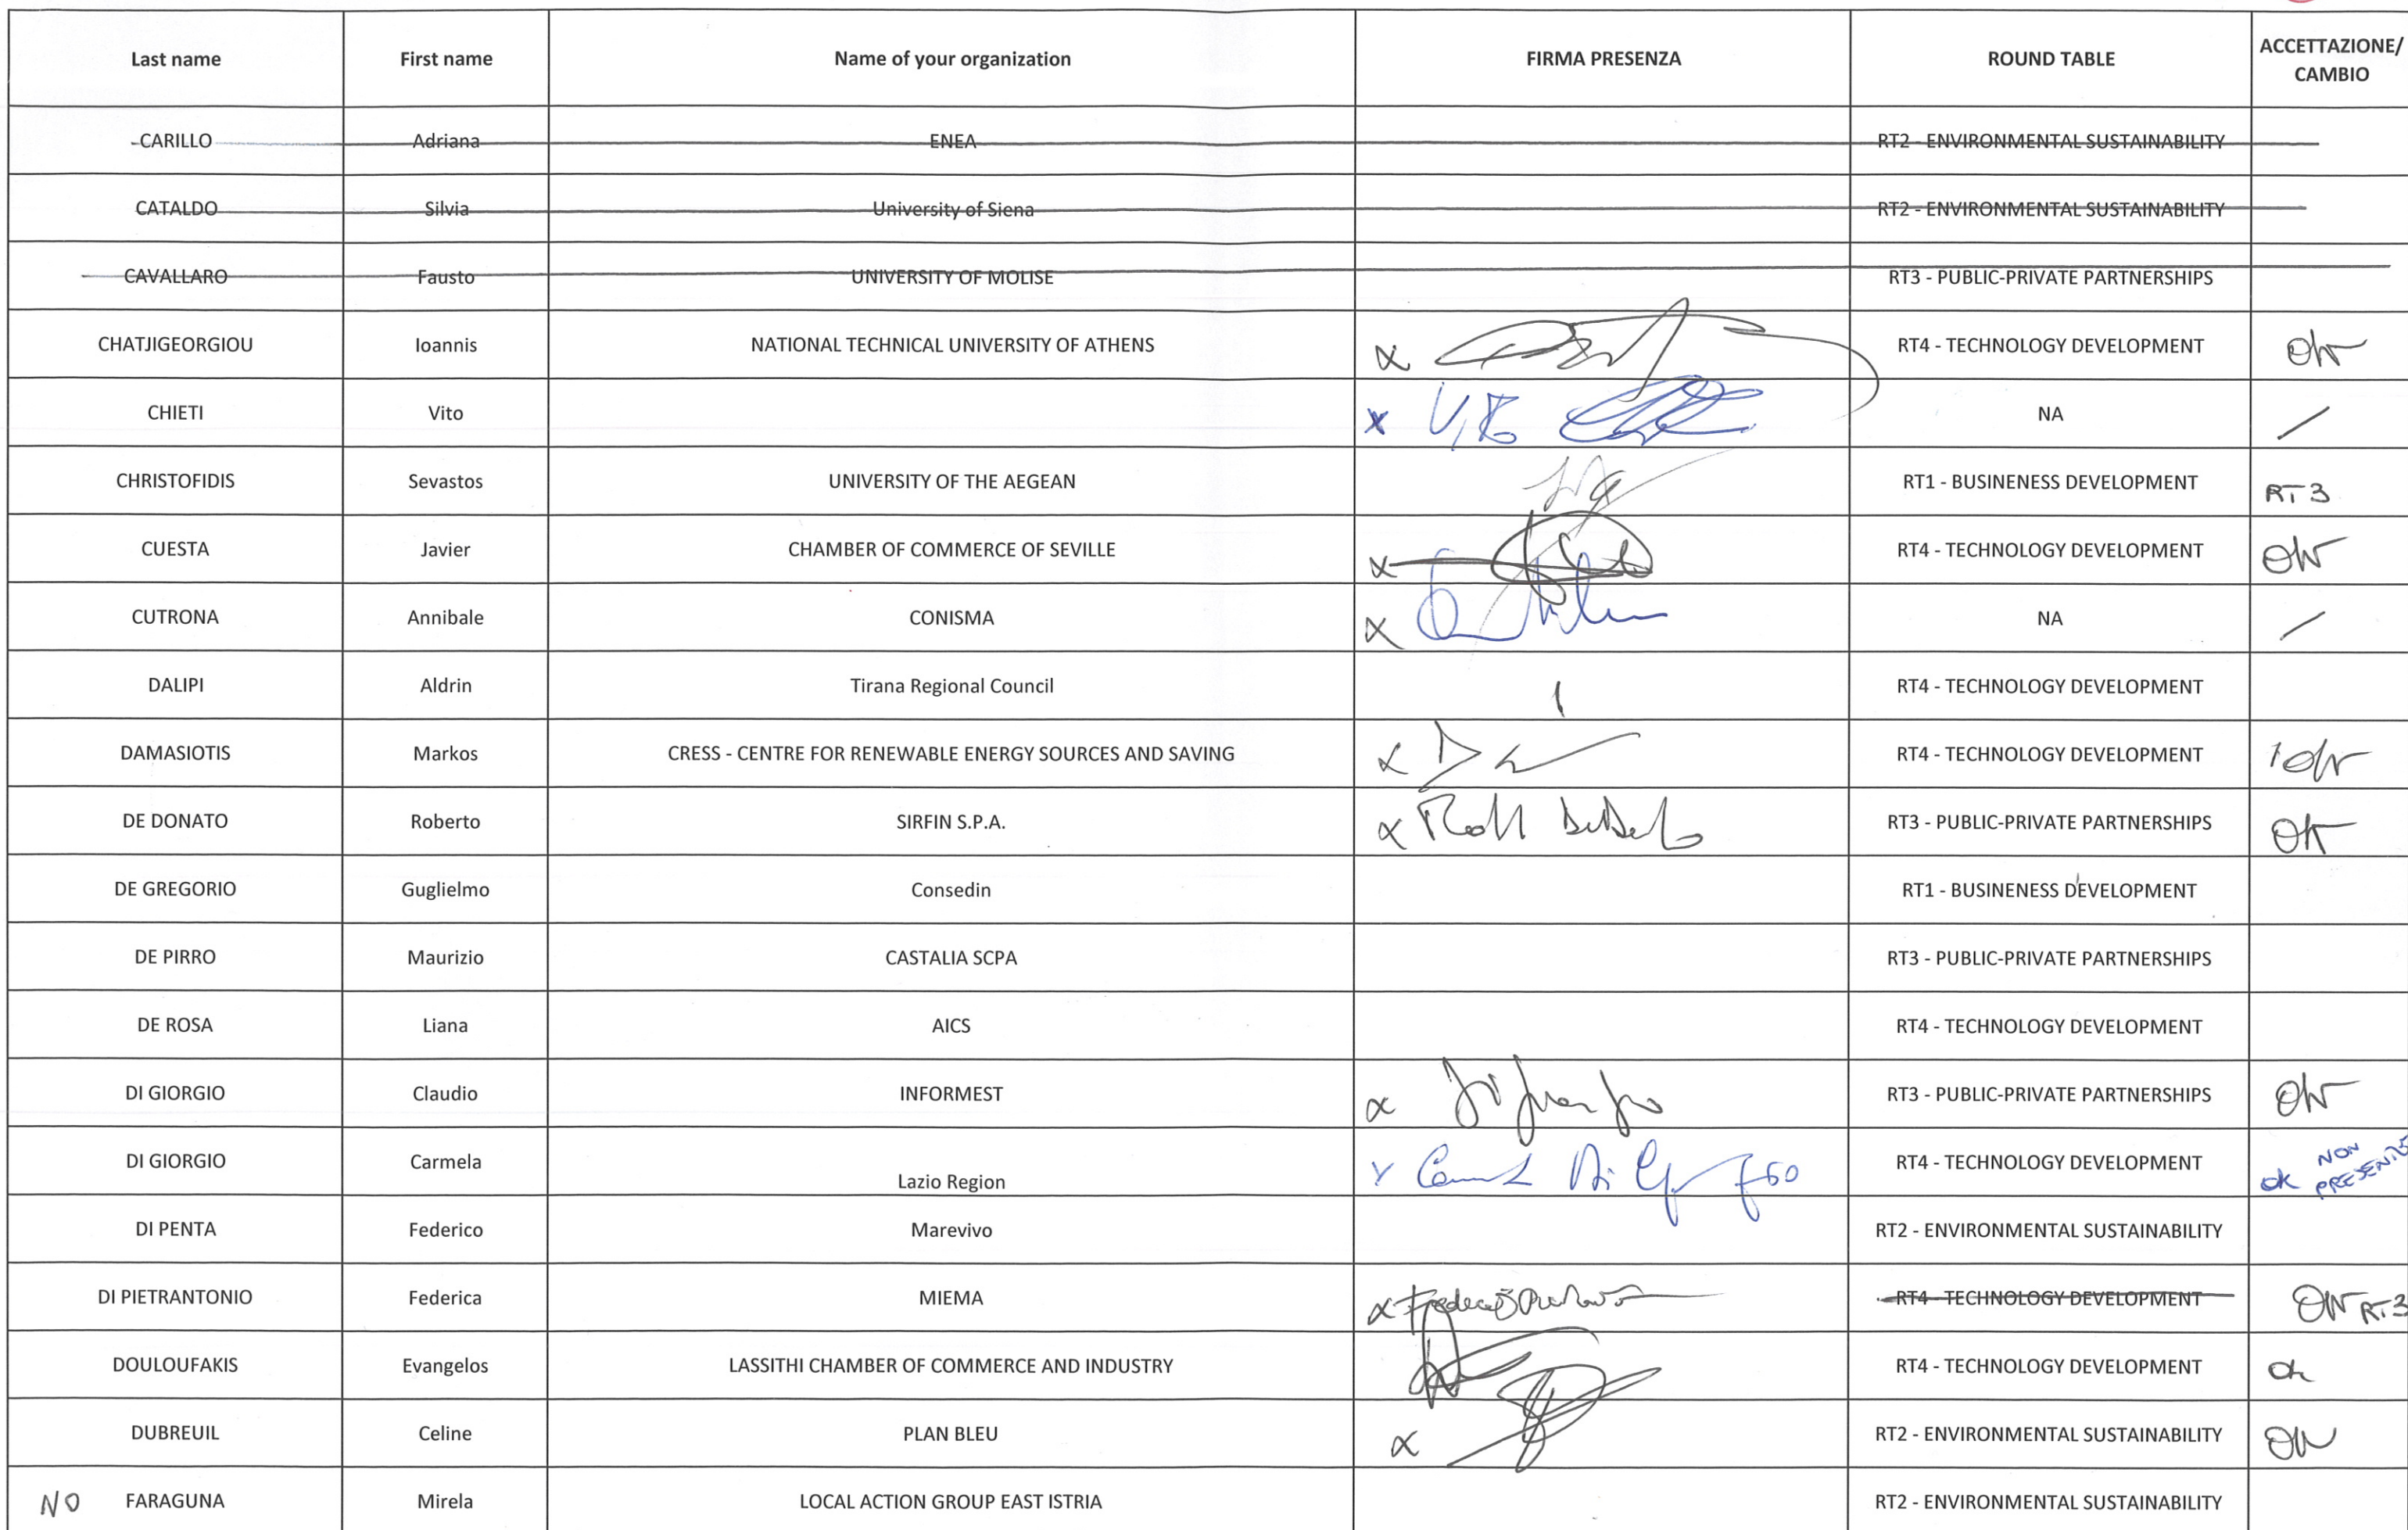 Last name First name Name of your organization FIRMA PRESENZA ROUND TABLE ACCETTAZIONE/
CAMBIO
CARILLO Adriana ENEA RT2 - ENVIRONMENTAL SUSTAINABILITY
CATALDO Silvia University of Siena RT2 - ENVIRONMENTAL SUSTAINABILITY
CAVALLARO Fausto UNIVERSITY OF MOLISE RT3 - PUBLIC-PRIVATE PARTNERSHIPS
CHATJIGEORGIOU Ioannis NATIONAL TECHNICAL UNIVERSITY OF ATHENS x RT4 - TECHNOLOGY DEVELOPMENT OK
CHIETI Vito x Vito NA /
CHRISTOFIDIS Sevastos UNIVERSITY OF THE AEGEAN RT1 - BUSINENESS DEVELOPMENT RT3
CUESTA Javier CHAMBER OF COMMERCE OF SEVILLE x RT4 - TECHNOLOGY DEVELOPMENT OK
CUTRONA Annibale CONISMA x NA /
DALIPI Aldrin Tirana Regional Council RT4 - TECHNOLOGY DEVELOPMENT
DAMASIOTIS Markos CRESS - CENTRE FOR RENEWABLE ENERGY SOURCES AND SAVING x RT4 - TECHNOLOGY DEVELOPMENT OK
DE DONATO Roberto SIRFIN S.P.A. x RT3 - PUBLIC-PRIVATE PARTNERSHIPS OK
DE GREGORIO Guglielmo Consedin RT1 - BUSINENESS DEVELOPMENT
DE PIRRO Maurizio CASTALIA SCPA RT3 - PUBLIC-PRIVATE PARTNERSHIPS
DE ROSA Liana AICS RT4 - TECHNOLOGY DEVELOPMENT
DI GIORGIO Claudio INFORMEST x RT3 - PUBLIC-PRIVATE PARTNERSHIPS OK
DI GIORGIO Carmela Lazio Region x RT4 - TECHNOLOGY DEVELOPMENT ok NON PRESENTE
DI PENTA Federico Marevivo RT2 - ENVIRONMENTAL SUSTAINABILITY
DI PIETRANTONIO Federica MIEMA x RT4 - TECHNOLOGY DEVELOPMENT OK RT3
DOULOUFAKIS Evangelos LASSITHI CHAMBER OF COMMERCE AND INDUSTRY RT4 - TECHNOLOGY DEVELOPMENT ok
DUBREUIL Celine PLAN BLEU x RT2 - ENVIRONMENTAL SUSTAINABILITY OK
NO FARAGUNA Mirela LOCAL ACTION GROUP EAST ISTRIA RT2 - ENVIRONMENTAL SUSTAINABILITY